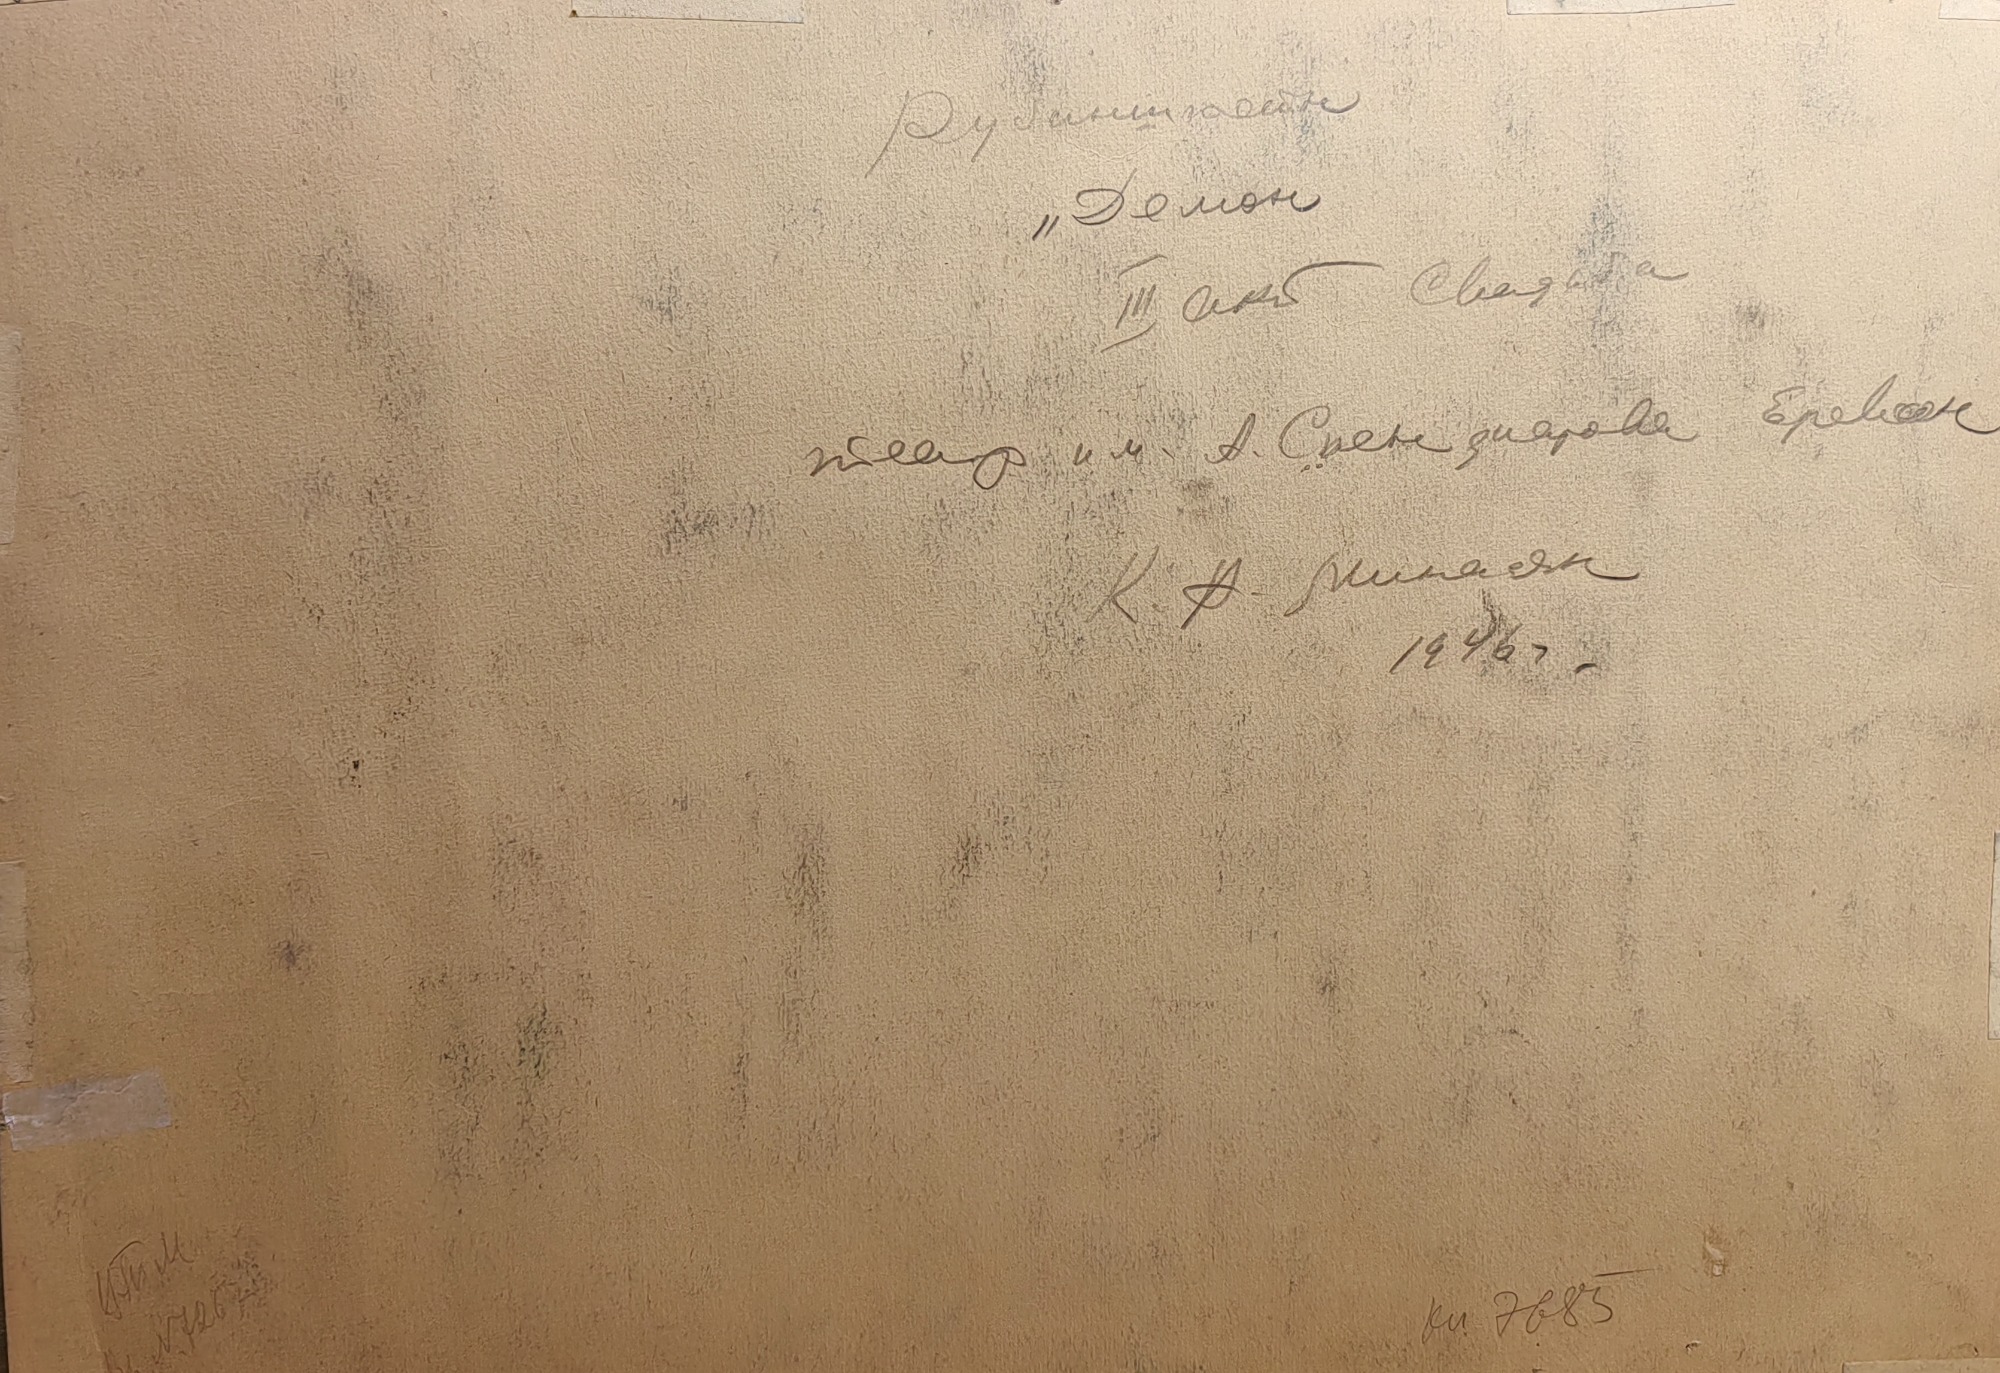 Рубинштейн
„Демон
III акт Свадьба
театр им. А. Спендиарова Ереван
К. А. Минасян
1946 г.
кп 7685